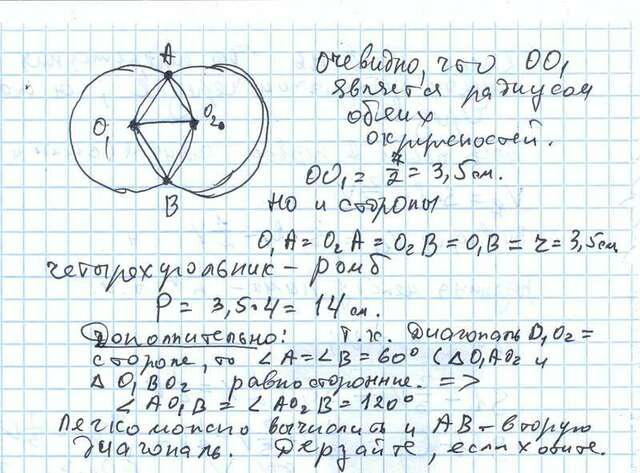 A
O₁
O₂
B
Очевидно, что OO₁
является радиусом
обеих
окружностей.
OO₁ = 7/2 = 3,5 см.
но и стороны
O₁A = O₂A = O₂B = O₁B = r = 3,5 см
четырехугольник – ромб
P = 3,5·4 = 14 см.
Дополнительно: Т.к. Диагональ O₁O₂ =
стороне, то ∠A = ∠B = 60° (△O₁AO₂ и
△O₁BO₂ равносторонние. =>
∠AO₁B = ∠AO₂B = 120°
Легко можно вычислить и AB – вторую
диагональ. Дерзайте, если хотите.